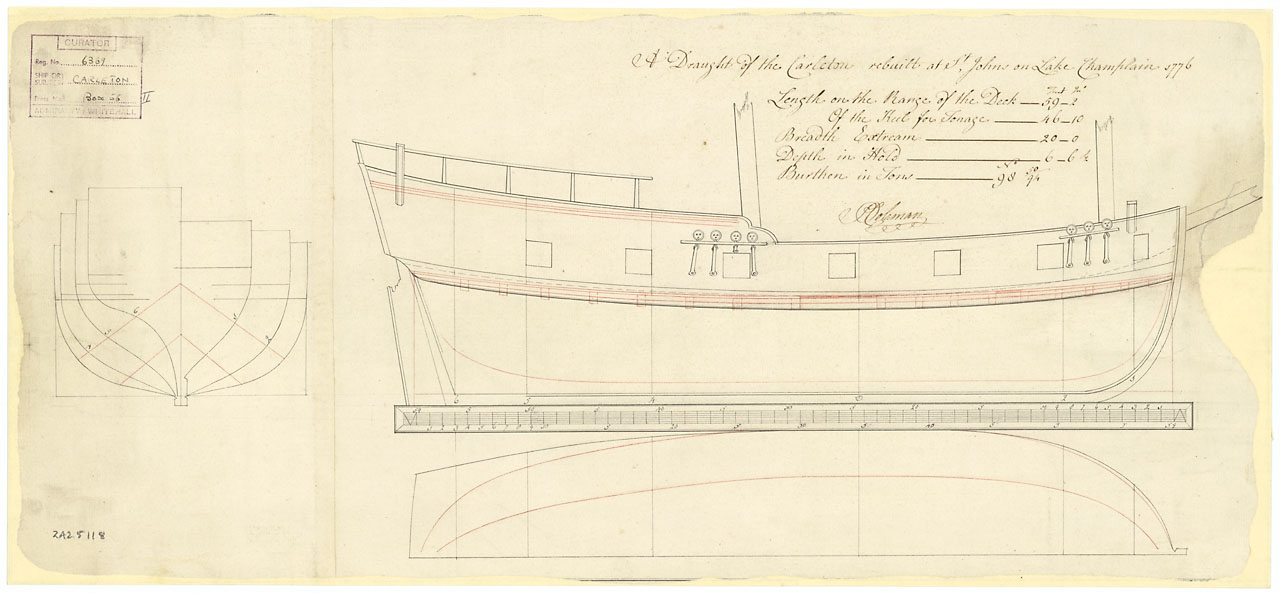 CURATOR
Reg. No. 6361
SHIP OR
CARLETON
Box 56 II
A Draught of the Carleton rebuilt at St. Johns on Lake Champlain 1776
Feet In.
Length on the Range of the Deck — 59 — 2
Of the Keel for Tonage — 46 — 10
Breadth Extream — 20 — 0
Depth in Hold — 6 — 6 ½
Burthen in Tons — No 98 94
2A25118